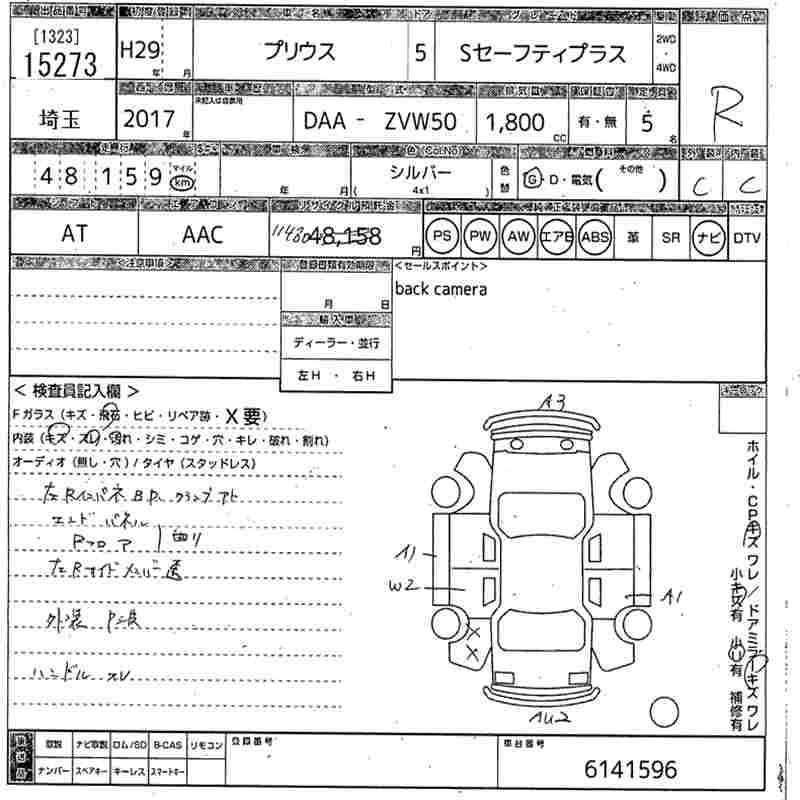 [1323]
15273
H29 年 月
プリウス
5
Sセーフティプラス
2WD
・
4WD
R
埼玉
2017 年
未記入は自家用
DAA - ZVW50
1,800 CC
有・無
5 名
48,159 マイル km
年 月
シルバー
( 4x1 )
色替
G・D・電気( その他 )
C
C
AT
AAC
48,158 円
PS PW AW エアB ABS 革 SR ナビ DTV
登録書類有効期限
<セールスポイント>
月 日
back camera
輸入車
ディーラー・並行
左H ・ 右H
< 検査員記入欄 >
Fガラス (キズ・飛石・ヒビ・リペア跡・X要)
内装 (キズ・スレ・汚れ・シミ・コゲ・穴・キレ・破れ・割れ)
オーディオ (無し・穴) / タイヤ (スタッドレス)
左Rインパネ B.P. クランプアト
エンドパネル
Rフロア 曲り
左Rサイドメンバー
外装
ハンドル スレ
A3
A1
W2
A1
AU2
ホイル・CPキズワレ/ドアミラーキズワレ
小キズ有 小U有 補修有
取説 ナビ取説 ロム/SD B-CAS リモコン
ナンバー スペアキー キーレス スマートキー
登録番号
車台番号
6141596